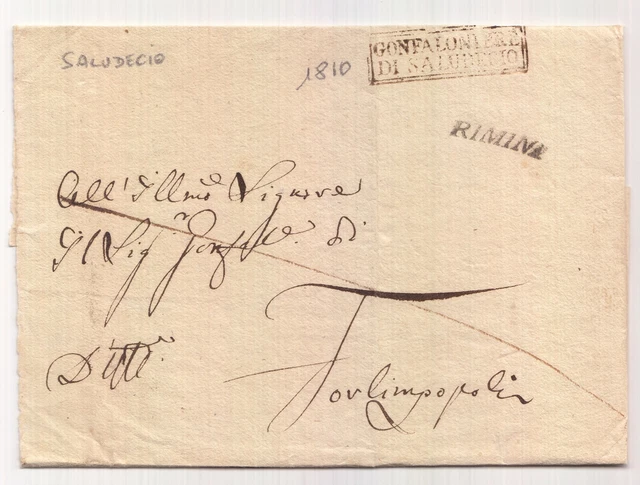 SALUDECIO
1810
GONFALONIERE
DI SALUDECIO
RIMINI
All' Illmo Signore
Il Sigr Gonfale. di
Forlimpopoli